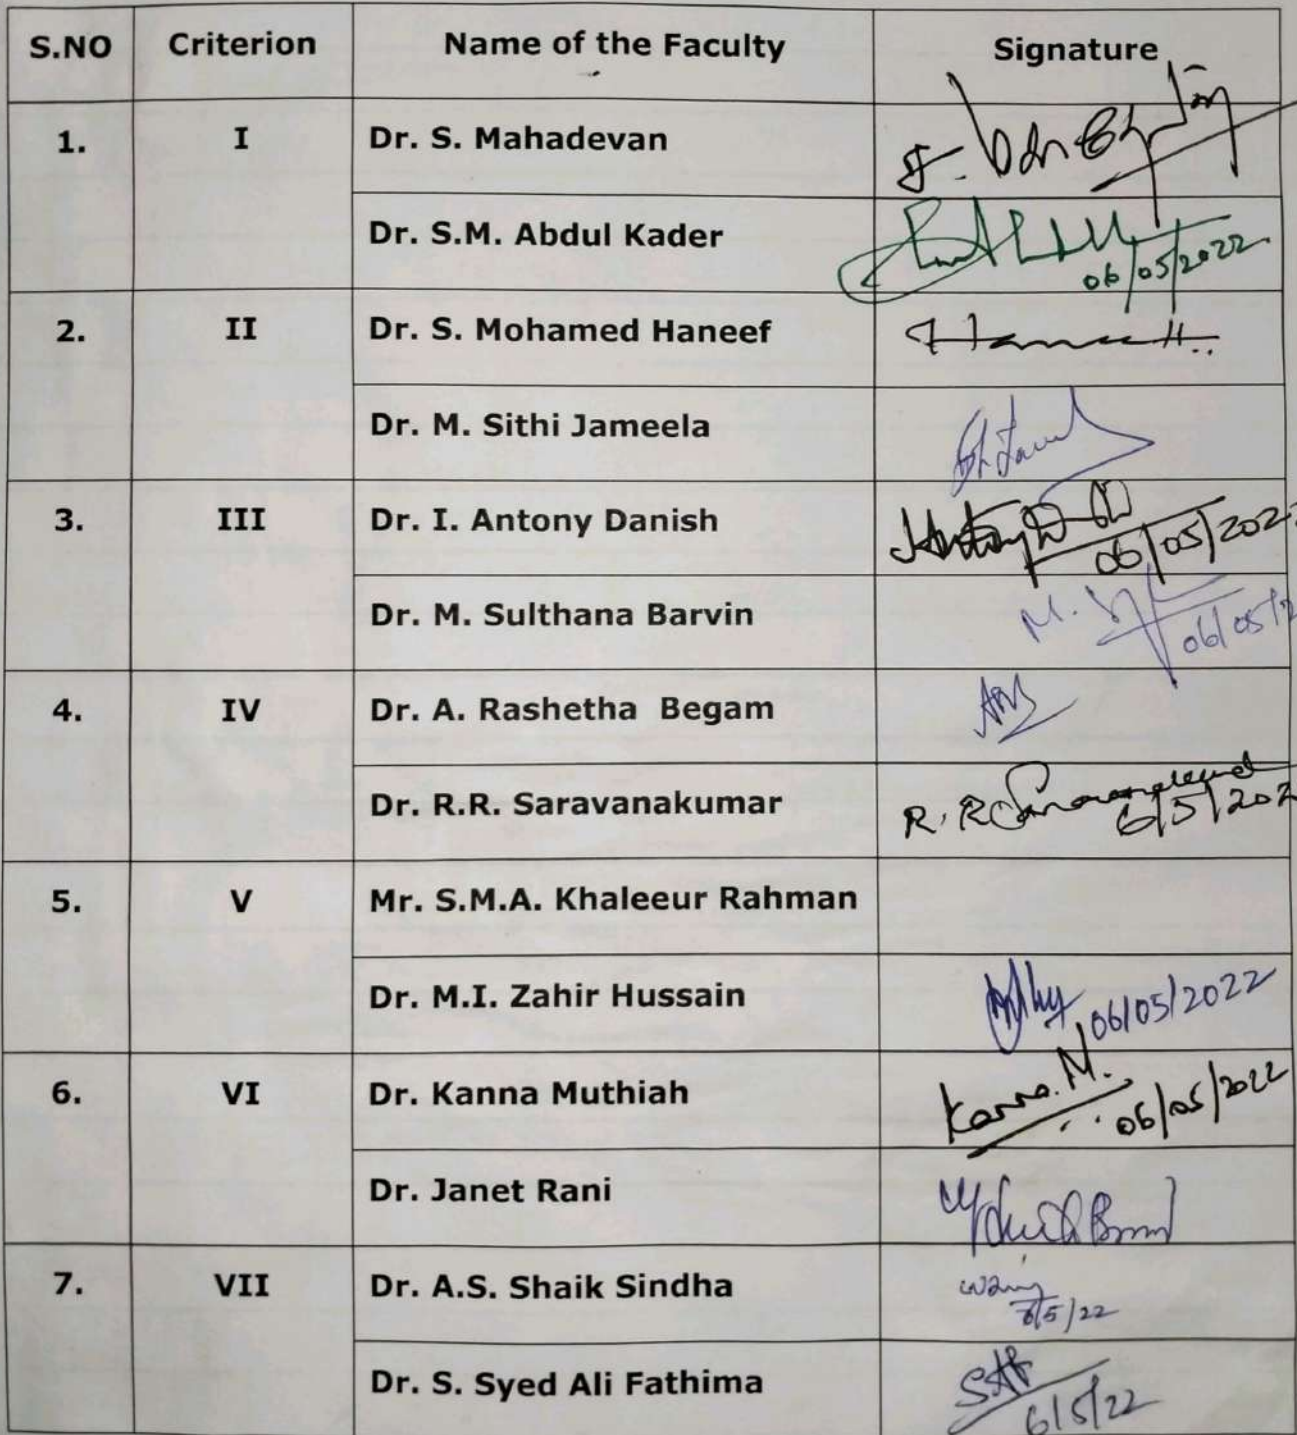 S.NO Criterion Name of the Faculty Signature
1. I Dr. S. Mahadevan
Dr. S.M. Abdul Kader 06/05/2022
2. II Dr. S. Mohamed Haneef
Dr. M. Sithi Jameela
3. III Dr. I. Antony Danish 06/05/202
Dr. M. Sulthana Barvin M. 06/05/2
4. IV Dr. A. Rashetha Begam
Dr. R.R. Saravanakumar R. R 6/5/202
5. V Mr. S.M.A. Khaleeur Rahman
Dr. M.I. Zahir Hussain 06/05/2022
6. VI Dr. Kanna Muthiah Kanna. M. 06/05/2022
Dr. Janet Rani
7. VII Dr. A.S. Shaik Sindha 6/5/22
Dr. S. Syed Ali Fathima 6/5/22